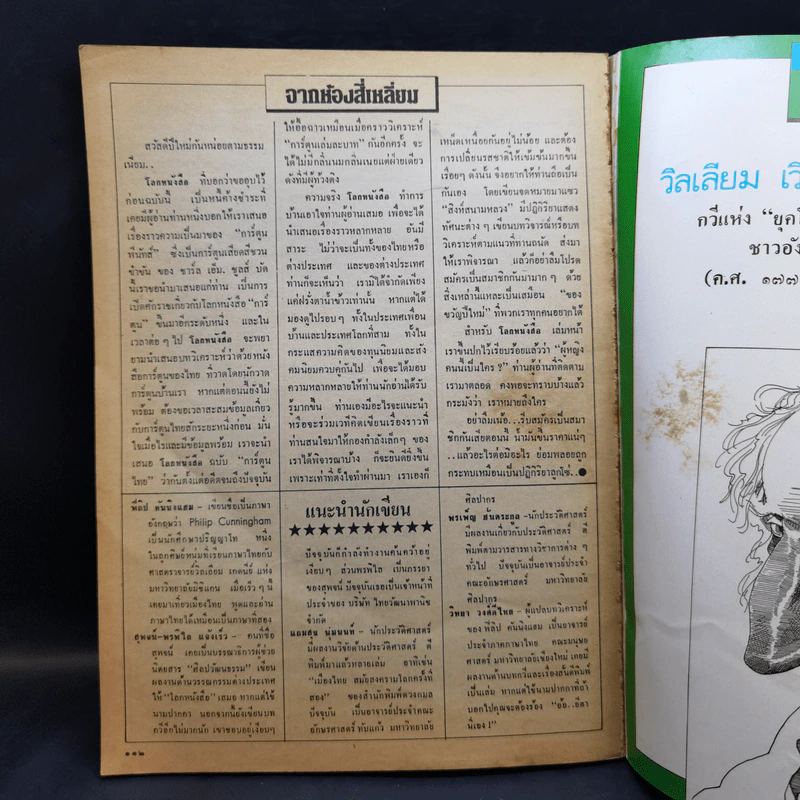 จากห้องสี่เหลี่ยม
สวัสดีปีใหม่กันหน่อยตามธรรม
เนียม..
โลกหนังสือ ที่บอกว่าขออุบไว้
ก่อนฉบับนี้ เป็นหนี้ค้างชำระที่
เคยมีผู้อ่านท่านหนึ่งบอกให้เราเสนอ
เรื่องราวความเป็นมาของ "การ์ตูน
พีนัทส์" ซึ่งเป็นการ์ตูนเสียดสีชวน
ขำขัน ของ ชาร์ล เอ็ม. ชูลส์ บัด
นี้เราขอนำมาเสนอแก่ท่าน เป็นการ
เปิดศักราชเกี่ยวกับโลกหนังสือ "การ์
ตูน" ขึ้นมาอีกระดับหนึ่ง และใน
เวลาต่อๆ ไป โลกหนังสือ จะพยา
ยามนำเสนอบทวิเคราะห์ว่าด้วยหนัง
สือการ์ตูนของไทย ที่วาดโดยนักวาด
การ์ตูนบ้านเรา หากแต่ตอนนี้ยังไม่
พร้อม ต้องขอเวลาสะสมข้อมูลเกี่ยว
กับการ์ตูนไทยสักระยะหนึ่งก่อน มั่น
ใจเมื่อไรและมีข้อมูลพร้อม เราจะนำ
เสนอ โลกหนังสือ ฉบับ "การ์ตูน
ไทย" ว่ากันตั้งแต่อดีตจนถึงปัจจุบัน
ให้อื้อฉาวเหมือนเมื่อคราววิเคราะห์
"การ์ตูนเล่มละบาท" กันอีกครั้ง จะ
ได้ไม่มีกลิ่นนมกลิ่นเนยแต่ฝ่ายเดียว
ดังที่มีผู้ท้วงติง
ความจริง โลกหนังสือ ทำการ
บ้านเอาใจท่านผู้อ่านเสมอ เพื่อจะได้
นำเสนอเรื่องราวหลากหลาย อันมี
สาระ ไม่ว่าจะเป็นทั้งของไทยหรือ
ต่างประเทศ และของต่างประเทศ
ท่านก็จะเห็นว่า เรามิได้จำกัดเพียง
แค่ฝรั่งตาน้ำข้าวเท่านั้น หากแต่ได้
มองดูไปรอบๆ ทั้งในประเทศเพื่อน
บ้านและประเทศโลกที่สาม ทั้งใน
กระแสความคิดของทุนนิยมและสัง
คมนิยมควบคู่กันไป เพื่อจะได้มอบ
ความหลากหลายให้ท่านนักอ่านได้รับ
รู้มากขึ้น ท่านเองมีอะไรจะแนะนำ
หรือจะร่วมเวทีคิดเขียนเรื่องราวที่
ท่านสนใจมาให้กองกำลังเล็กๆ ของ
เราได้พิจารณาบ้าง ก็จะยินดียิ่งขึ้น
เพราะเท่าที่ตั้งใจทำผ่านมา เราเองก็
เหน็ดเหนื่อยกันอยู่ไม่น้อย และต้อง
การเปลี่ยนรสชาติให้เข้มข้นมากขึ้น
เรื่อยๆ ดังนั้น จึงอยากให้ท่านถือเป็น
กันเอง โดยเขียนจดหมายมาแซว
"สิงห์สนามหลวง" มีปฏิกิริยาแสดง
ทัศนะต่างๆ เขียนบทวิจารณ์หรือบท
วิเคราะห์ตามแนวที่ท่านถนัด ส่งมา
ให้เราพิจารณา แล้วก็อย่าลืมโปรด
สมัครเป็นสมาชิกกันมามากๆ ด้วย
สิ่งเหล่านี้แหละเป็นเสมือน "ของ
ขวัญปีใหม่" ที่พวกเราทุกคนอยากได้
สำหรับ โลกหนังสือ เล่มหน้า
เราขึ้นปกไว้เรียบร้อยแล้วว่า "ผู้หญิง
คนนี้เป็นใคร ?" ท่านผู้อ่านที่ติดตาม
เรามาตลอด คงพอจะทราบบ้างแล้ว
กระมังว่า เราหมายถึงใคร
อย่าลืมเน้อ...รีบสมัครเป็นสมา
ชิกกันเสียตอนนี้ น้ำมันขึ้นราคาแน่ๆ
..แล้วอะไรต่อมิอะไร ย่อมพลอยถูก
กระทบเหมือนเป็นปฏิกิริยาลูกโซ่..●
แนะนำนักเขียน
★★★★★★★★★★
ฟิลิป คันนิงแฮม – เขียนชื่อเป็นภาษา
อังกฤษว่า Philip Cunningham
เป็นนักศึกษาปริญญาโท หนึ่ง
ในลูกศิษย์หนุ่มที่เรียนภาษาไทยกับ
ศาสตราจารย์วิลเลียม เกดนีย์ แห่ง
มหาวิทยาลัยมิชิแกน เมื่อเร็วๆ นี้
เคยมาเที่ยวเมืองไทย พูดและอ่าน
ภาษาไทยได้เหมือนเป็นภาษาที่สอง
สุพจน์-พรพิไล แจ้งเร็ว – คนที่ชื่อ
สุพจน์ เคยเป็นบรรณาธิการผู้ช่วย
นิตยสาร "ศิลปวัฒนธรรม" เขียน
ผลงานด้านวรรณกรรมต่างประเทศ
ให้ "โลกหนังสือ" เสมอ หากแต่ใช้
นามปากกา นอกจากนี้ยังเขียนบท
กวีอีกไม่มากนัก เขาชอบอยู่เงียบๆ
ปัจจุบันก็กำลังทำงานค้นคว้าอยู่
เงียบๆ ส่วนพรพิไล เป็นภรรยา
ของสุพจน์ ปัจจุบันเธอเป็นเจ้าหน้าที่
ประจำของ บริษัท ไทยวัฒนาพานิช
จำกัด
แถมสุข นุ่มนนท์ – นักประวัติศาสตร์
มีผลงานวิจัยด้านประวัติศาสตร์ ตี
พิมพ์มาแล้วหลายเล่ม อาทิเช่น
"เมืองไทย สมัยสงครามโลกครั้งที่
สอง" ของสำนักพิมพ์ดวงกมล
ปัจจุบัน เป็นอาจารย์ประจำคณะ
อักษรศาสตร์ ทับแก้ว มหาวิทยาลัย
ศิลปากร
พรเพ็ญ ฮั่นตระกูล – นักประวัติศาสตร์
มีผลงานเกี่ยวกับประวัติศาสตร์ ตี
พิมพ์ตามวารสารทางวิชาการต่างๆ
ทั่วไป ปัจจุบันเป็นอาจารย์ประจำ
คณะอักษรศาสตร์ มหาวิทยาลัย
ศิลปากร
วิทยา วงศ์ดีไทย – ผู้แปลบทวิเคราะห์
ของ ฟิลิป คันนิงแฮม เป็นอาจารย์
ประจำภาคภาษาไทย คณะมนุษย
ศาสตร์ มหาวิทยาลัยเชียงใหม่ เคยมี
ผลงานด้านบทกวีและเรื่องสั้นตีพิมพ์
เป็นเล่ม หากแต่ใช้นามปากกาที่ถ้า
บอกไปคุณจะต้องร้อง "อ้อ..อีตา
นี่เอง !"
๑๑๒
วิลเลียม เวิ
กวีแห่ง "ยุค
ชาวอัง
(ค.ศ. ๑๗๗